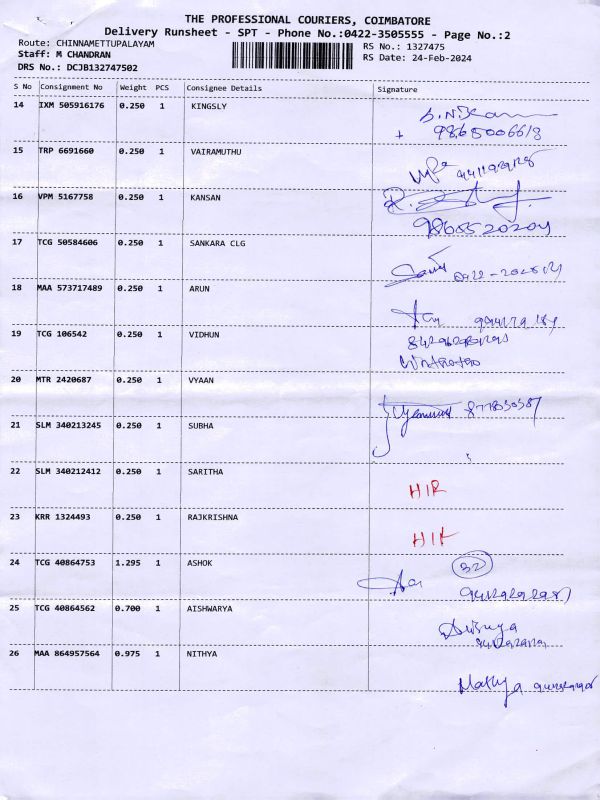 THE PROFESSIONAL COURIERS, COIMBATORE
Delivery Runsheet - SPT - Phone No.:0422-3505555 - Page No.:2
Route: CHINNAMETTUPALAYAM
RS No.: 1327475
Staff: M CHANDRAN
RS Date: 24-Feb-2024
DRS No.: DCJB132747502
S No Consignment No Weight PCS Consignee Details Signature
14 IXM 505916176 0.250 1 KINGSLY
9865006618
15 TRP 6691660 0.250 1 VAIRAMUTHU
16 VPM 5167758 0.250 1 KANSAN
9868520204
17 TCG 50584606 0.250 1 SANKARA CLG
18 MAA 573717489 0.250 1 ARUN
19 TCG 106542 0.250 1 VIDHUN
20 MTR 2420687 0.250 1 VYAAN
21 SLM 340213245 0.250 1 SUBHA
22 SLM 340212412 0.250 1 SARITHA
HIR
23 KRR 1324493 0.250 1 RAJKRISHNA
24 TCG 40864753 1.295 1 ASHOK
32
25 TCG 40864562 0.700 1 AISHWARYA
26 MAA 864957564 0.975 1 NITHYA